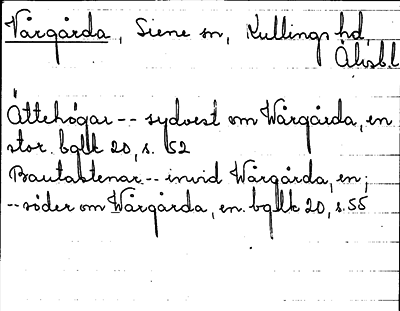 Vårgårda, Siene sn, Kullings hd,
Älvsbl
Ättehögar -- sydvest om Wårgårda, en
stor. bgllk 20, s. 52
Bautastenar -- invid Wårgårda, en;
-- söder om Wårgårda, en. bgllk 20, s. 55